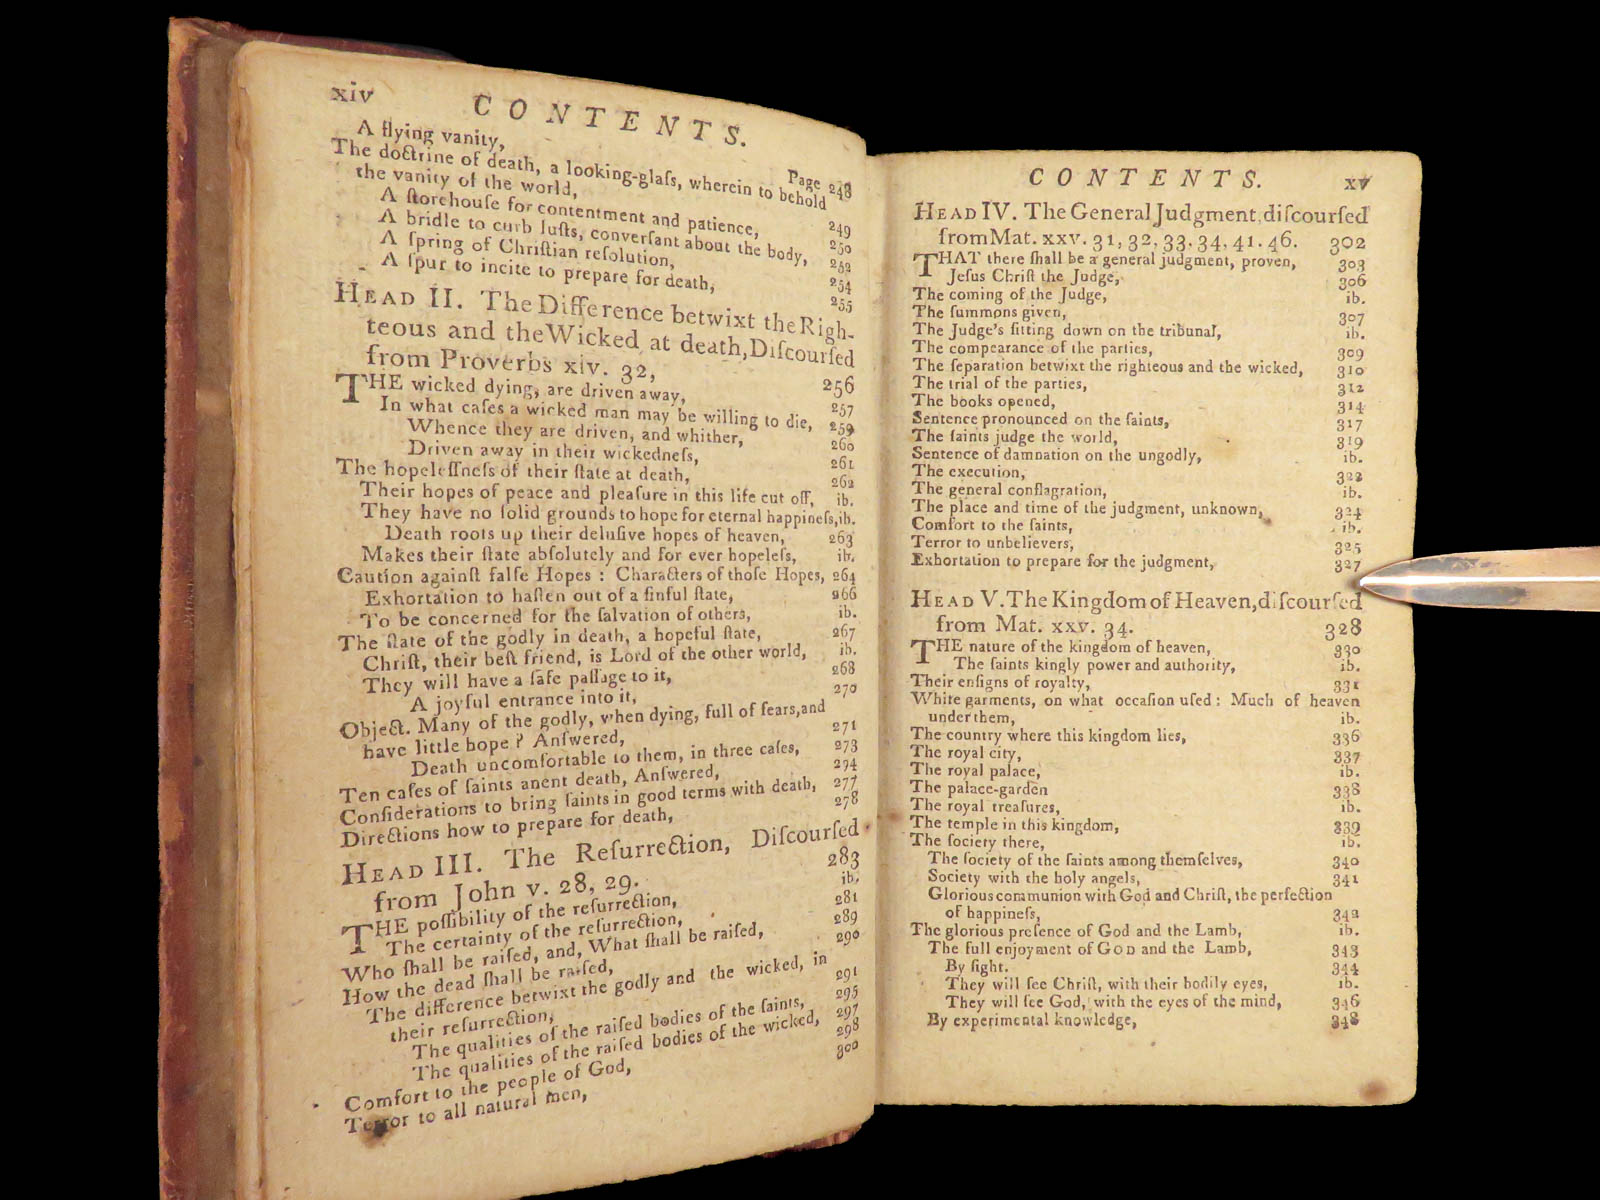 xiv CONTENTS.
A flying vanity, Page 248
The doctrine of death, a looking-glaſs, wherein to behold
the vanity of the world, 249
A ſtorehouſe for contentment and patience, 250
A bridle to curb luſts, converſant about the body, 252
A ſpring of Chriſtian reſolution, 254
A ſpur to incite to prepare for death, 255
HEAD II. The Difference betwixt the Righ-
teous and the Wicked at death, Diſcourſed
from Proverbs xiv. 32, 256
THE wicked dying, are driven away, 257
In what caſes a wicked man may be willing to die, 259
Whence they are driven, and whither, 260
Driven away in their wickedneſs, 261
The hopeleſſneſs of their ſtate at death, 262
Their hopes of peace and pleaſure in this life cut off, ib.
They have no ſolid grounds to hope for eternal happineſs, ib.
Death roots up their deluſive hopes of heaven, 263
Makes their ſtate abſolutely and for ever hopeleſs, ib.
Caution againſt falſe Hopes : Characters of thoſe Hopes, 264
Exhortation to haſten out of a ſinful ſtate, 266
To be concerned for the ſalvation of others, ib.
The ſtate of the godly in death, a hopeful ſtate, 267
Chriſt, their beſt friend, is Lord of the other world, ib.
They will have a ſafe paſſage to it, 268
A joyful entrance into it, 270
Object. Many of the godly, when dying, full of fears, and
have little hope ? Anſwered, 271
Death uncomfortable to them, in three caſes, 273
Ten caſes of ſaints anent death, Anſwered, 294
Conſiderations to bring ſaints in good terms with death, 277
Directions how to prepare for death, 278
HEAD III. The Reſurrection, Diſcourſed
from John v. 28, 29. 283
THE poſſibility of the reſurrection, ib.
The certainty of the reſurrection, 281
Who ſhall be raiſed, and, What ſhall be raiſed, 289
How the dead ſhall be raiſed, 290
The difference betwixt the godly and the wicked, in
their reſurrection, 291
The qualities of the raiſed bodies of the ſaints, 295
The qualities of the raiſed bodies of the wicked, 297
Comfort to the people of God, 298
Terror to all natural men, 300
CONTENTS. xv
HEAD IV. The General Judgment, diſcourſed
from Mat. xxv. 31, 32, 33, 34, 41. 46. 302
THAT there ſhall be a general judgment, proven, 303
Jeſus Chriſt the Judge, 306
The coming of the Judge, ib.
The ſummons given, 307
The Judge's ſitting down on the tribunal, ib.
The compearance of the parties, 309
The ſeparation betwixt the righteous and the wicked, 310
The trial of the parties, 312
The books opened, 314
Sentence pronounced on the ſaints, 317
The ſaints judge the world, 319
Sentence of damnation on the ungodly, ib.
The execution, 322
The general conflagration, ib.
The place and time of the judgment, unknown, 324
Comfort to the ſaints, ib.
Terror to unbelievers, 325
Exhortation to prepare for the judgment, 327
HEAD V. The Kingdom of Heaven, diſcourſed
from Mat. xxv. 34. 328
THE nature of the kingdom of heaven, 330
The ſaints kingly power and authority, ib.
Their enſigns of royalty, 331
White garments, on what occaſion uſed : Much of heaven
under them, ib.
The country where this kingdom lies, 336
The royal city, 337
The royal palace, ib.
The palace-garden 338
The royal treaſures, ib.
The temple in this kingdom, 339
The ſociety there, ib.
The ſociety of the ſaints among themſelves, 340
Society with the holy angels, 341
Glorious communion with God and Chriſt, the perfection
of happineſs, 342
The glorious preſence of God and the Lamb, ib.
The full enjoyment of GOD and the Lamb, 343
By ſight. 344
They will ſee Chriſt, with their bodily eyes, ib.
They will ſee God, with the eyes of the mind, 346
By experimental knowledge, 348